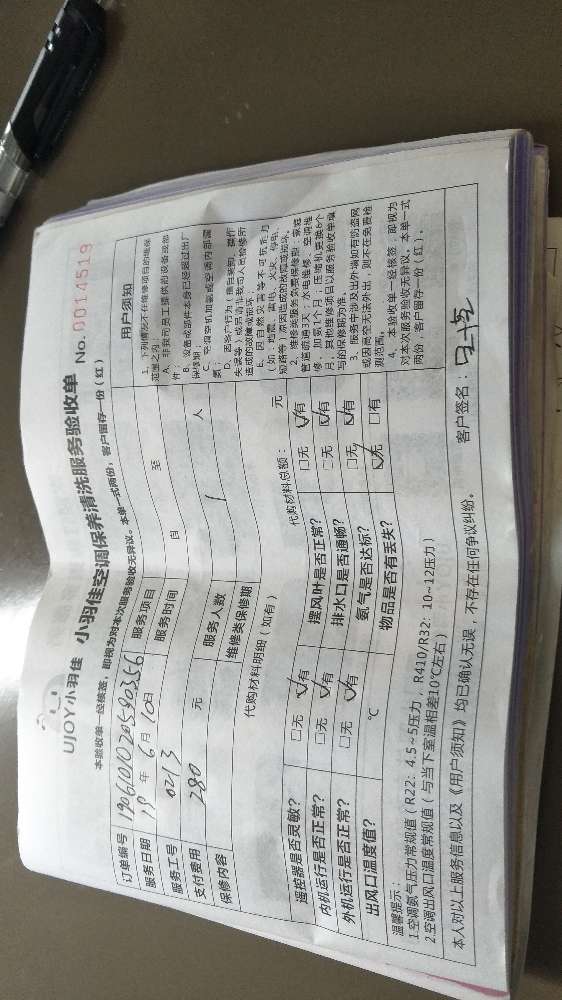 UJOY小羽佳 小羽佳空调保养清洗服务验收单 No.0014519
本验收单一经核签，即视为对本次服务验收无异议。本单一式两份，客户留存一份（红）
订单编号 1906101020590356 服务项目
服务日期 19年6月10日 服务时间 自 至
服务工号 0213 服务人数 1 人
支付费用 280 元 维修类保修期
保修内容
代购材料明细（如有） 代购材料总额： 元
遥控器是否灵敏？ □无 ☑有 摆风叶是否正常？ □无 ☑有
内机运行是否正常？ □无 ☑有 排水口是否通畅？ □无 ☑有
外机运行是否正常？ □无 ☑有 氨气是否达标？ □无 ☑有
出风口温度值？ ℃ 物品是否有丢失？ ☑无 □有
用户须知
1、下列情况不在维修项目的维保
范围之列：
A、非我司员工提供的设备或部
件；
B、设备或部件本身已经超过出厂
保修期；
C、空调空机加氨或空调内部漏
氨；
D、因客户行为（擅自装卸、操作
失误等）或另请非我司人员检修所
造成的故障或损坏；
E、因自然灾害等不可抗拒力
（如：地震、雷电、火灾、停电、
短路等）原因造成的故障或损坏。
2、维修类服务免费保修期：家庭
管道疏通3天，水电维修、空调维
修、加氨1个月，压缩机更换6个
月，其他维修项目以服务验收单填
写的保修期为准。
3、服务中涉及出外墙如有防盗网
或因高空无法外出，则不在免费检
测范围。
4、本验收单一经核签，即视为
对本次服务验收无异议。本单一式
两份，客户留存一份（红）。
温馨提示：
1.空调氨气压力常规值（R22：4.5~5压力，R410/R32：10~12压力）
2.空调出风口温度常规值（与当下室温相差10℃左右）
本人对以上服务信息以及《用户须知》均已确认无误，不存在任何争议纠纷。 客户签名：